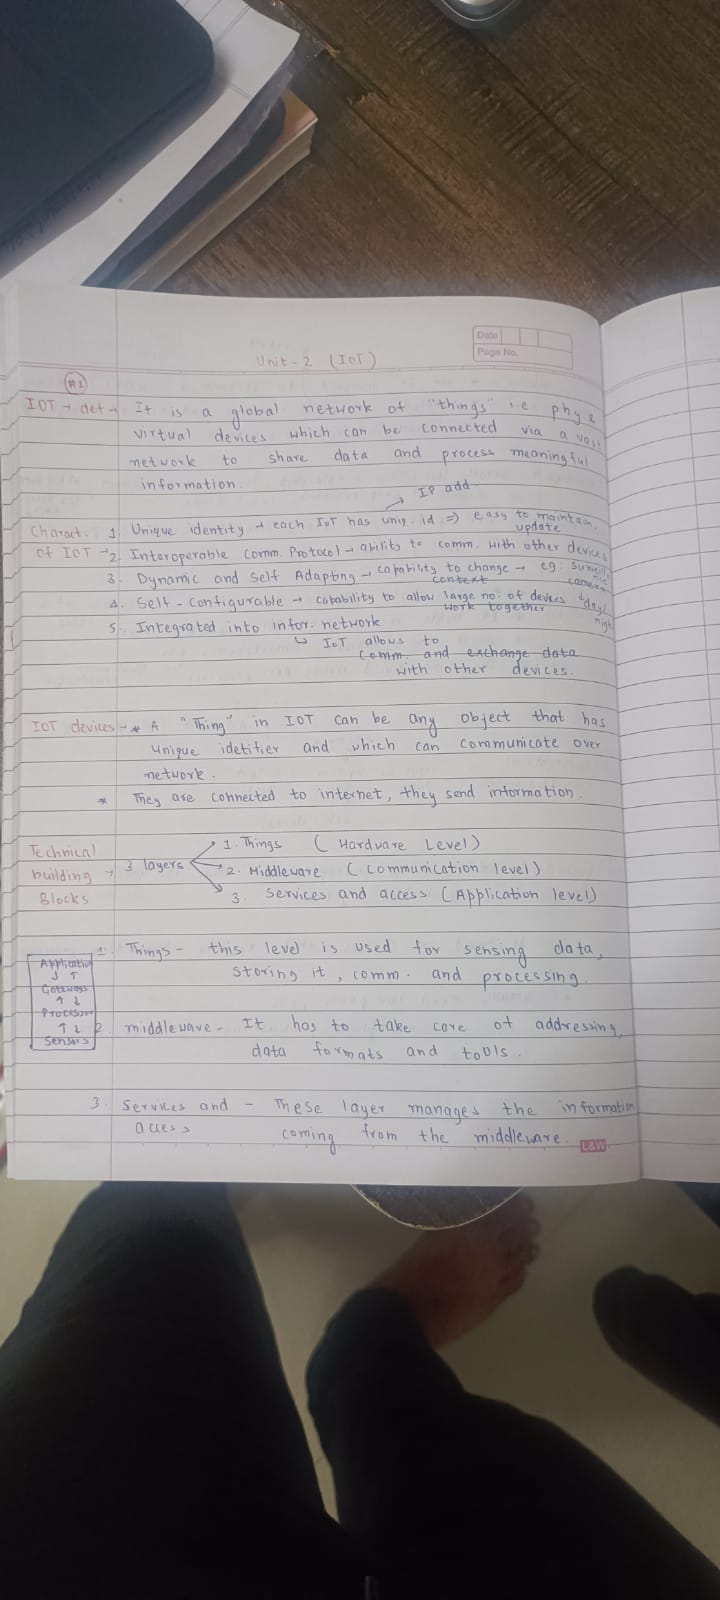 Date
Page No.
Unit-2 (IOT)
#1
IOT → def → It is a global network of "things" i.e phy &
virtual devices which can be connected via a vast
network to share data and process meaningful
information.
→ IP add
Charact. 1. Unique identity → each IoT has uniq. id ⇒ easy to maintain,
update
of IOT → 2. Interoperable Comm. Protocol → ability to comm. with other devices
3. Dynamic and Self Adapting → capability to change → eg:
context camera
4. Self-Configurable → capability to allow large no. of devices day/
work together night
5. Integrated into infor. network
↳ IoT allows to
comm. and exchange data
with other devices.
IOT devices → * A "Thing" in IOT can be any object that has
unique idetifier and which can communicate over
network.
* They are connected to internet, they send information.
Technical → 1. Things (Hardware Level)
building → 3 layers → 2. Middleware (Communication level)
Blocks → 3. Services and access (Application level)
1. Things - this level is used for sensing data,
storing it, comm. and processing.
Application
↓ ↑
Gateways
↑ ↓
Processor
↑ ↓
Sensors
2. middleware - It has to take care of addressing,
data formats and tools.
3. Services and - These layer manages the information
access coming from the middleware.
L&W